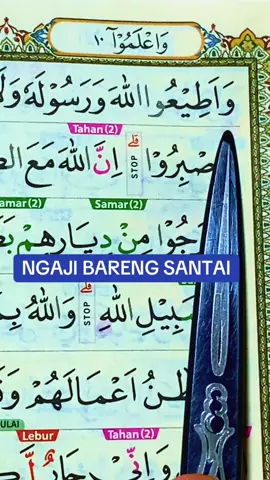 وَاعْلَمُوْٓا ١٠
وَاَطِيْعُوا اللّٰهَ وَرَسُوْلَهٗ وَلَا
Tahan (2)
صْبِرُوْا ۗ قلے STOP اِنَّ اللّٰهَ مَعَ
amar (2) Samar (2)
جُوْا مِنْ دِيَارِهِمْ
NGAJI BARENG SANTAI
سَبِيْلِ اللّٰهِ ۗ قلے STOP وَاللّٰهُ
طٰنُ اَعْمَالَهُمْ
ULAI Lebur Tahan (2)
وَاِنِّيْ